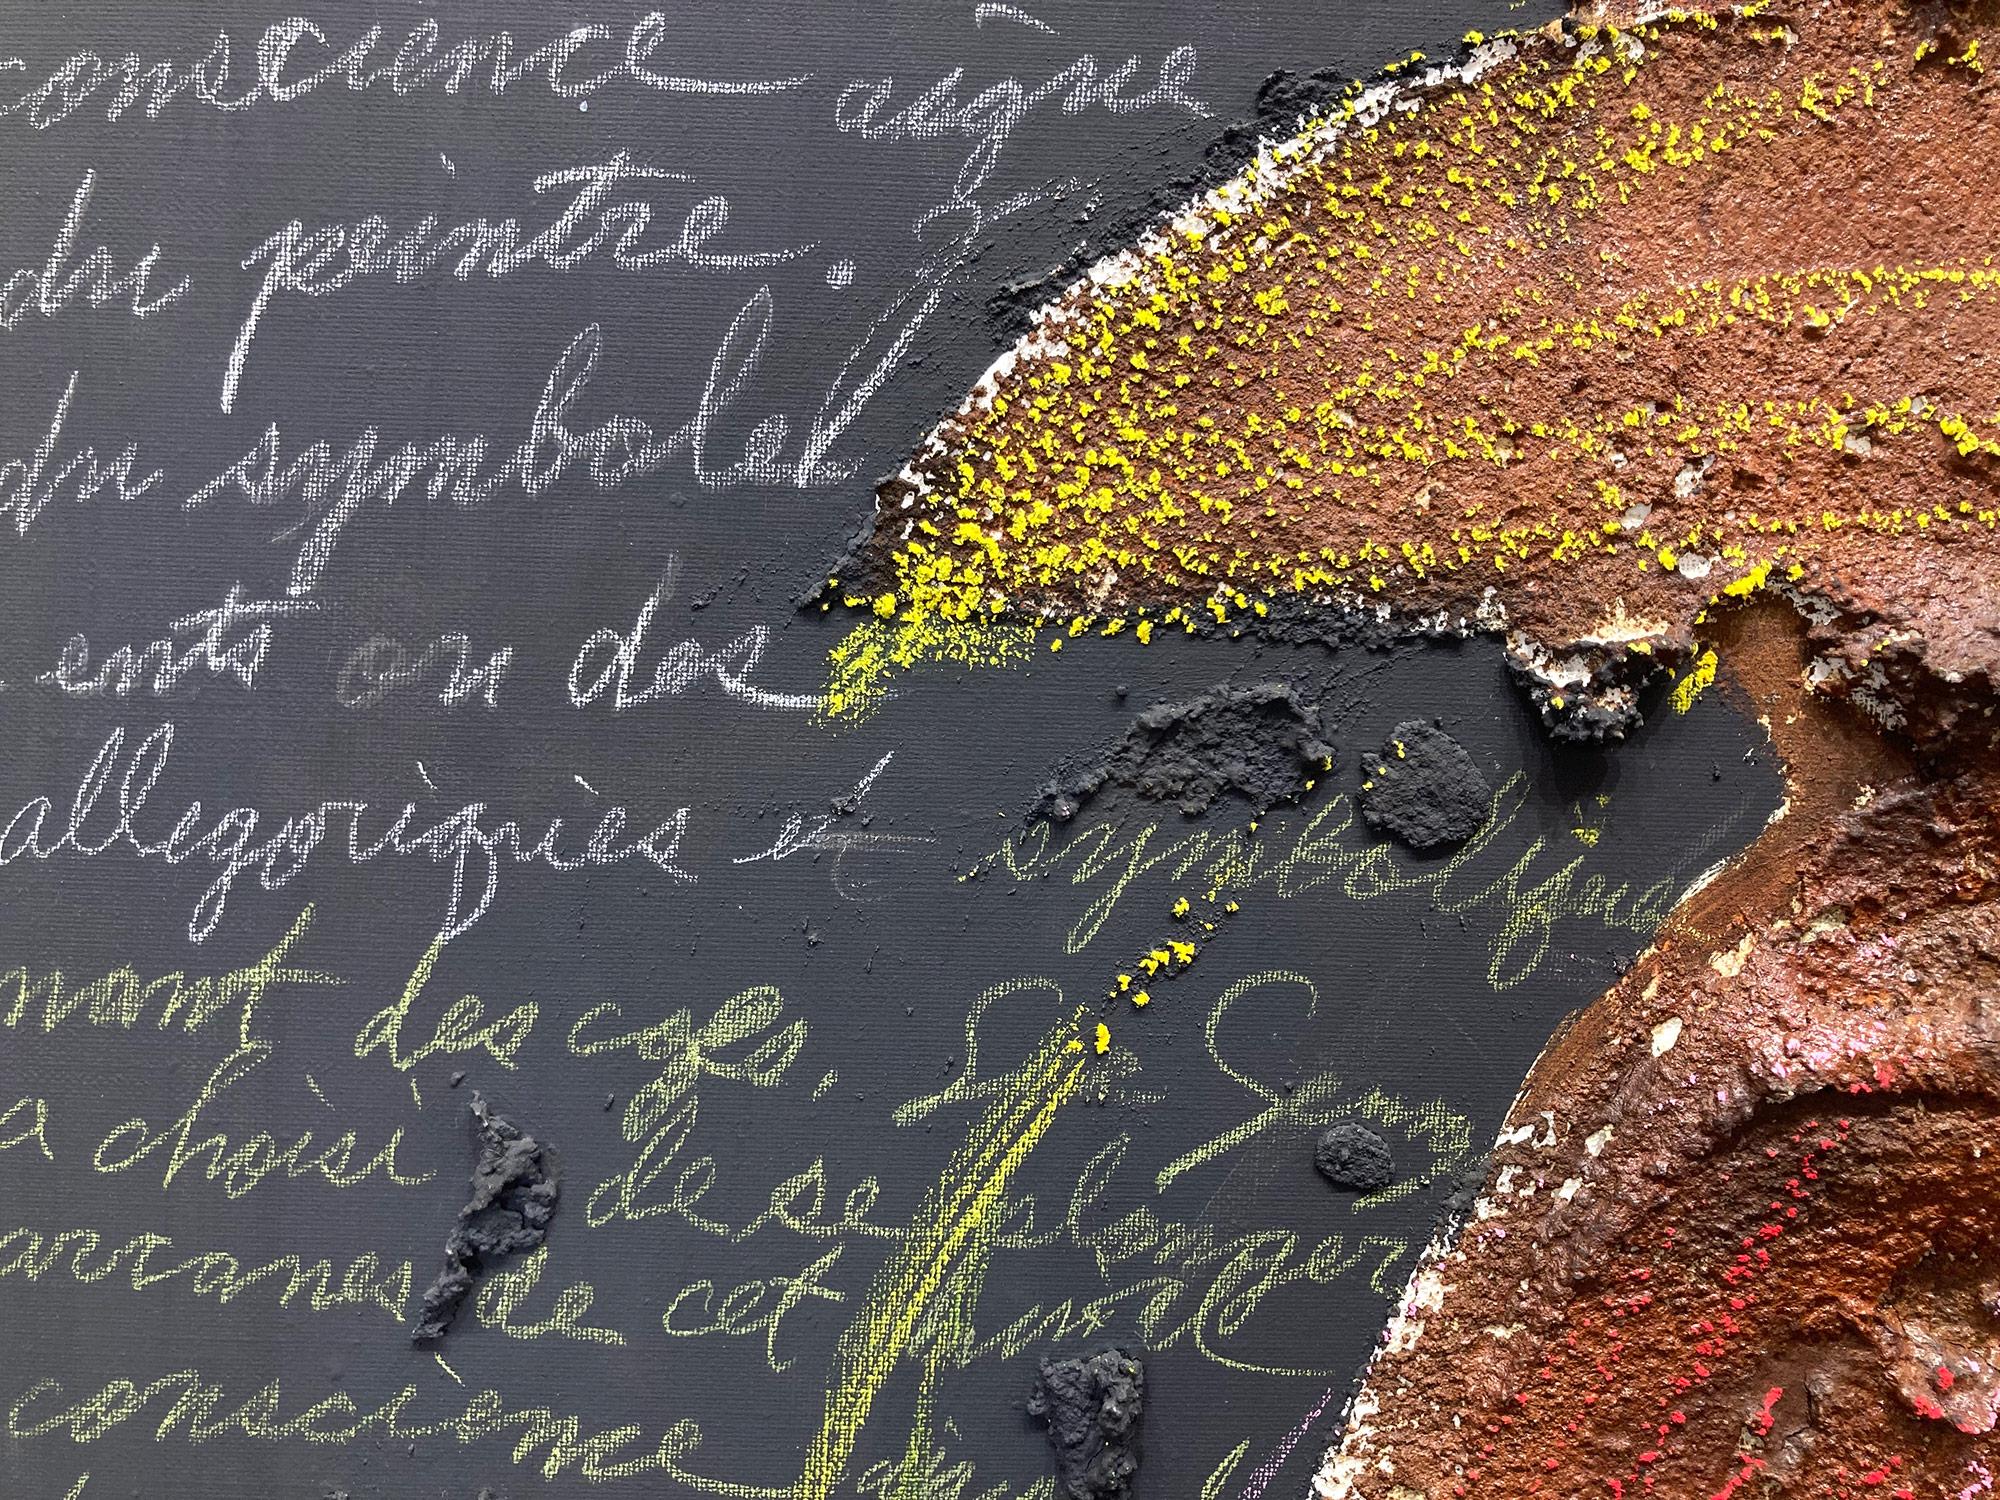 conscience aigue
du peintre.
du symbole
ents ou des
allegoriques et symbolique
mant des
a choisi de se plonger
arcanes de cet
conscience aigu